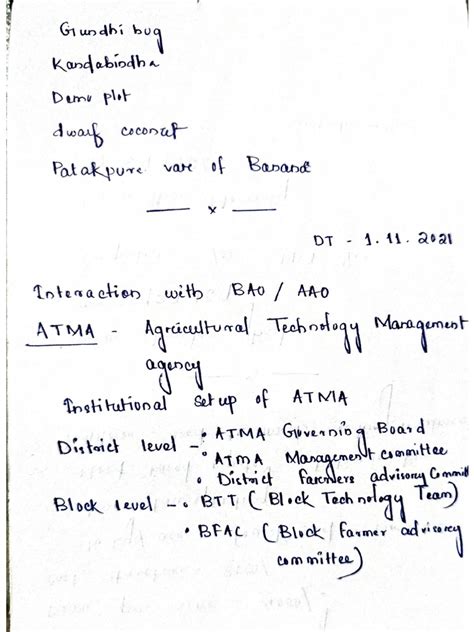 Gundhi bug
Kandabindha
Demo plot
dwarf coconut
Patakpura vare of Banana
x
DT - 1.11.2021
Interaction with BAO / AAO
ATMA - Agricultural Technology Management
agency
Institutional Set up of ATMA
District level - • ATMA Governing Board
• ATMA Management committee
• District farmers advisory Committ
Block level - • BTT ( Block Technology Team)
• BFAC ( Block farmer advisory
committee)